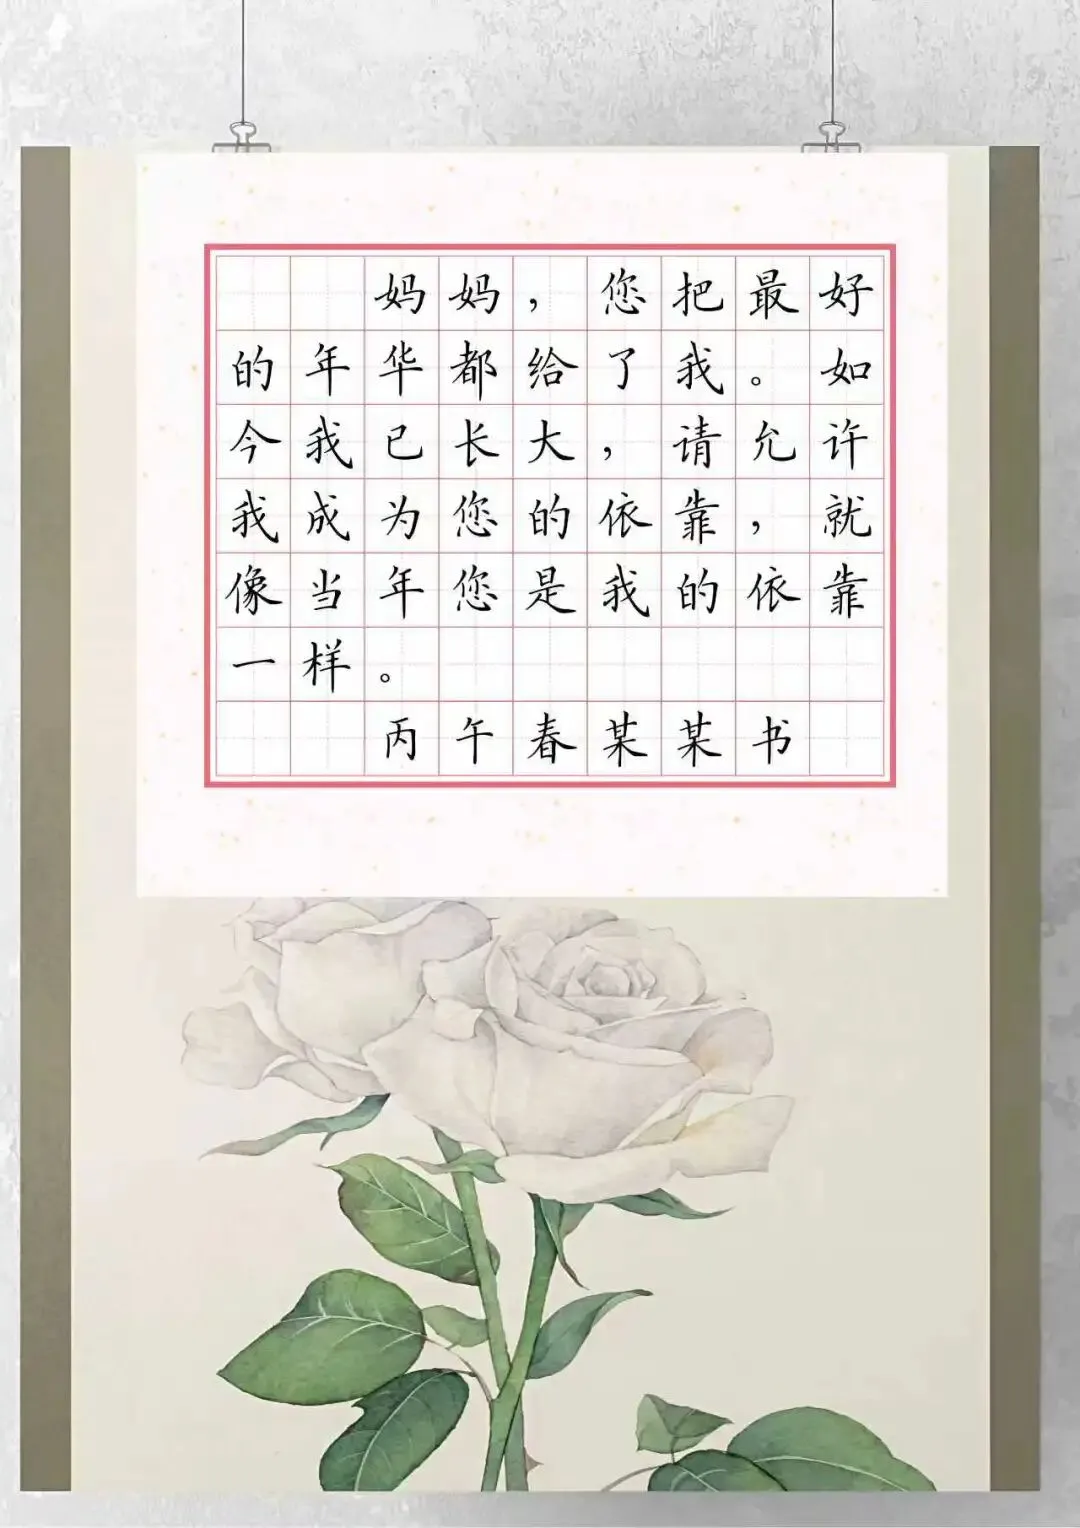 妈妈，您把最好
的年华都给了我。如
今我已长大，请允许
我成为您的依靠，就
像当年您是我的依靠
一样。
丙午春某某书